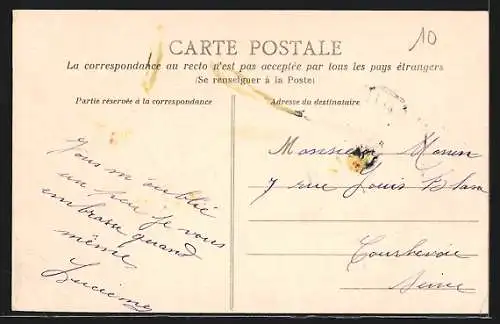 10
CARTE POSTALE
La correspondance au recto n'est pas acceptée par tous les pays étrangers
(Se renseigner à la Poste)
Partie réservée à la correspondance
Adresse du destinataire
Vous m'oublié
un peu je vous
embrasse quand
même
Monsieur
7 rue Louis Blanc
Courbevoie
Seine